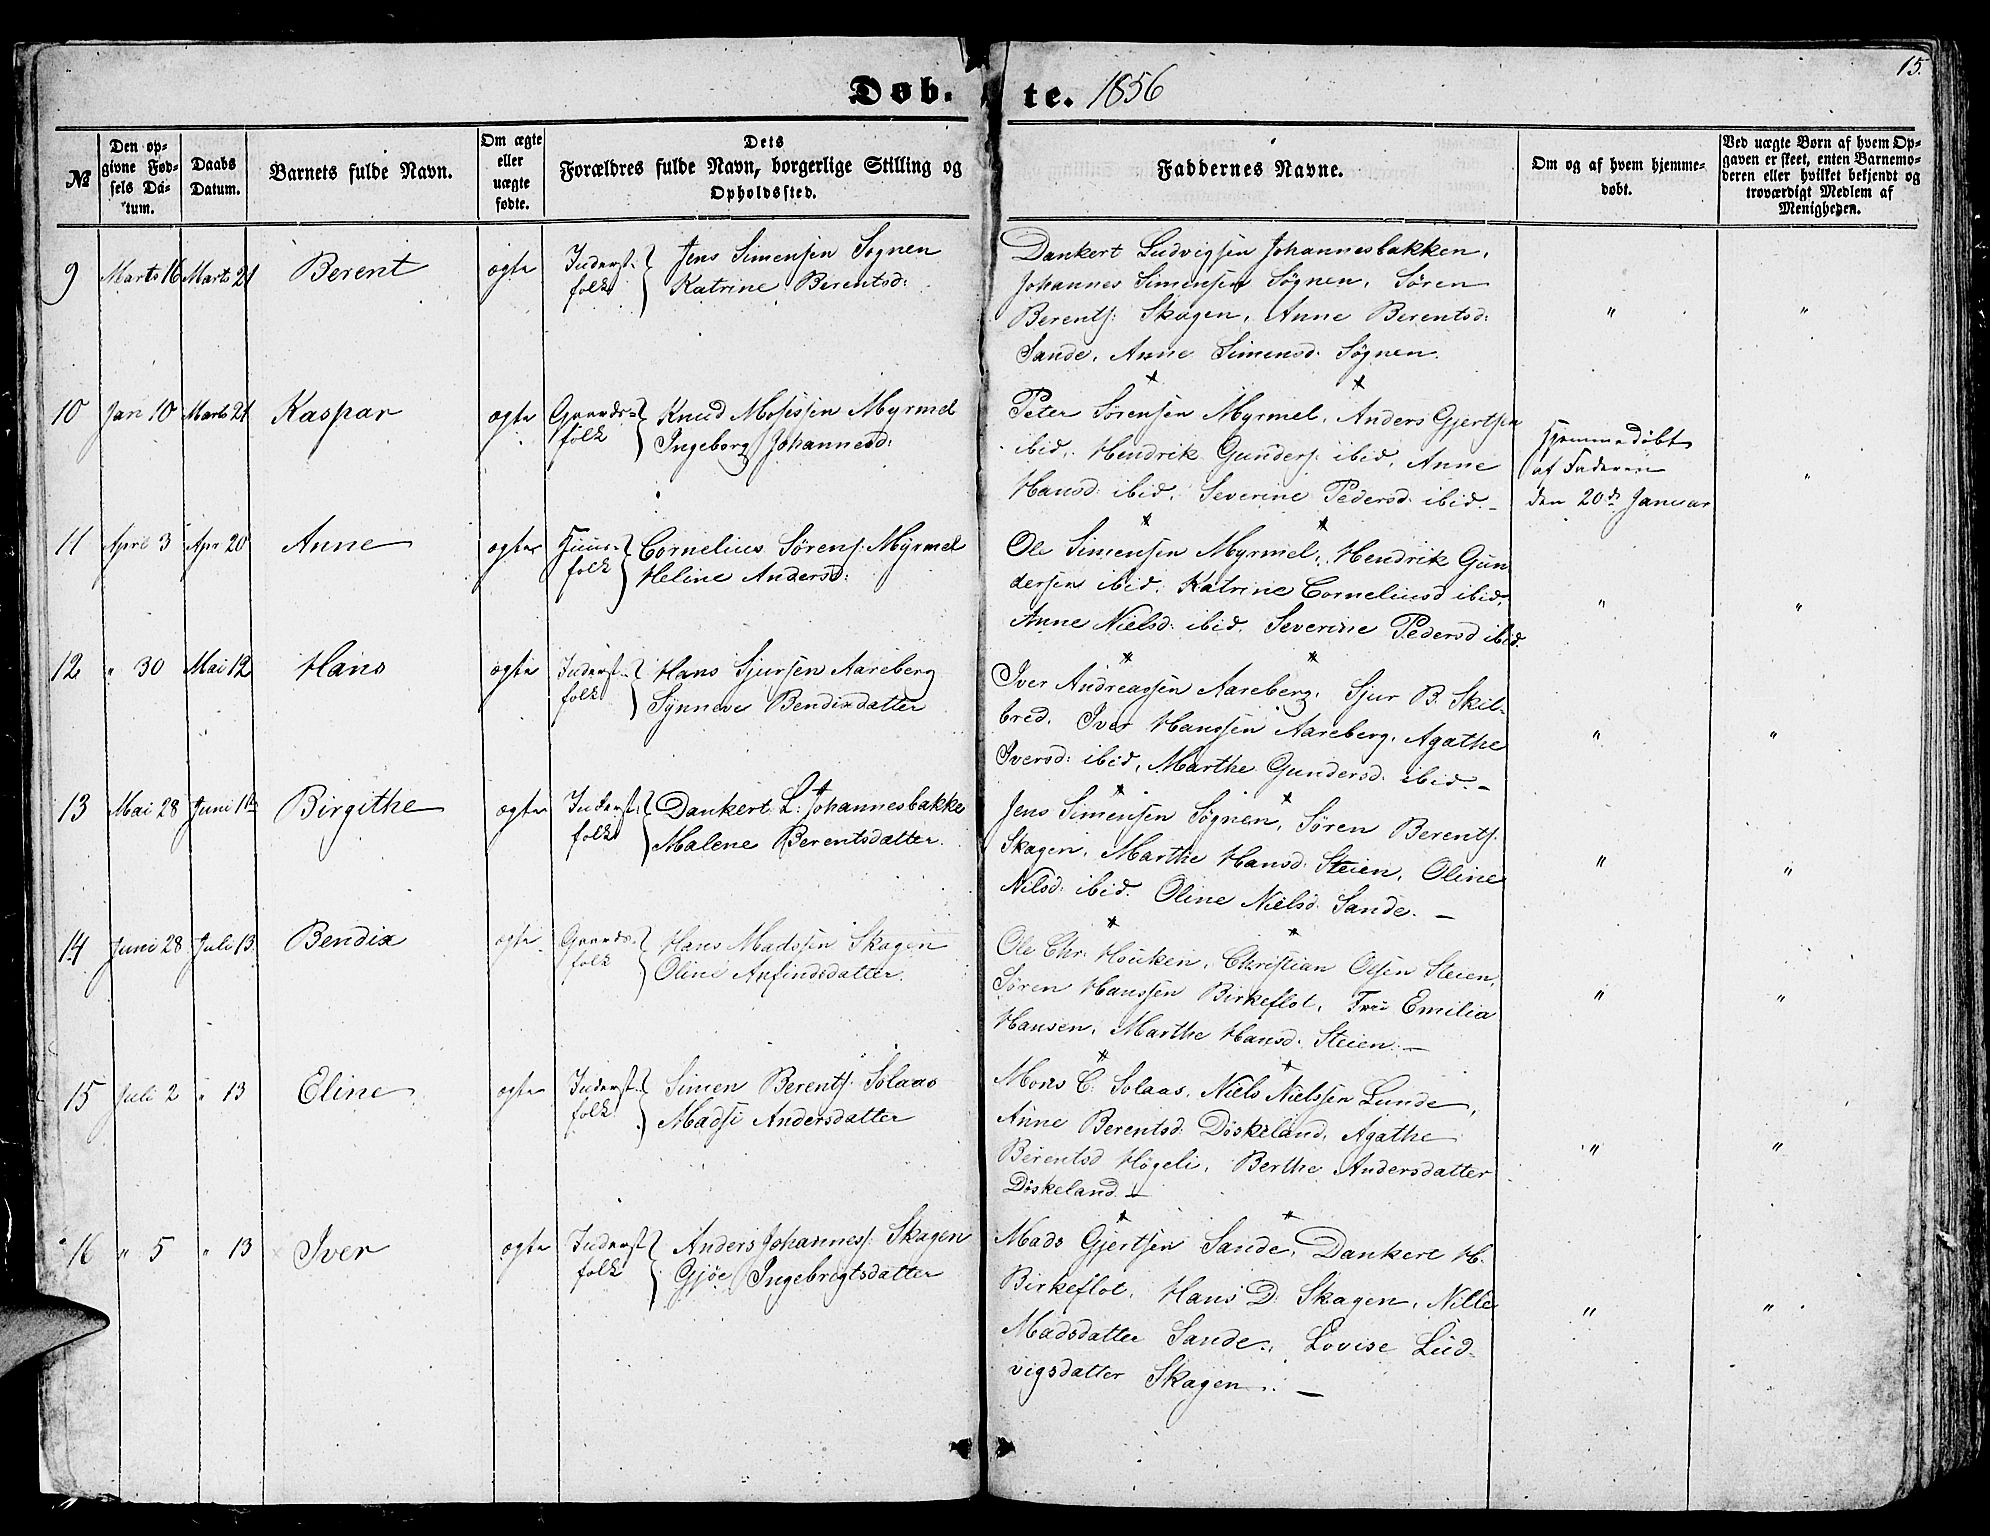 15.
Døb- te. 1856
№
Den op-
givne Fød-
sels Da-
tum.
Daabs
Datum.
Barnets fulde Navn.
Om ægte
eller
uægte
fødte.
Dets
Forældres fulde Navn, borgerlige Stilling og
Opholdssted.
Faddernes Navne.
Om og af hvem hjemme-
døbt.
Ved uægte Børn af hvem Op-
gaven er skeet, enten Barnemo-
deren eller hvilket bekjendt og
troværdigt Medlem af
Menigheden.
9 Marts 16 Marts 21 Berent ægte Inderst-
folk
Jens Simensen Sognen
Katrine Berentsd:
Dankert Ludvigsen Johannesbakken,
Johannes Simensen Søgnen, Søren
Berents: Skagen, Anne Berentsd:
Sande, Anne Simensd. Søgnen.
" "
10 Jan 10 Marts 21 Kaspar ægte Gaards-
folk
Knud Mosessen Myrmel
Ingeborg Johannesd:
Peter Sørensen Myrmel, Anders Gjertsen
ibid, Hendrik Gunders: ibid, Anne
Hansd: ibid, Severine Pedersd: ibid. -
Hjemmedøbt
af Faderen
den 20de Januar
"
11 April 3 Apr 20 Anne ægte Huus-
folk
Cornelius Sørens: Myrmel
Heline Andersd:
Ole Simensen Myrmel, Hendrik Gun
dersen ibid, Katrine Corneliusd ibid,
Anne Nielsd: ibid. Severine Pedersd ibid.
" "
12 " 30 Mai 12 Hans ægte Inderst-
folk
Hans Sjursen Aareberg
Synneve Bendixdatter
Iver Andreassen Aareberg, Sjur B. Skil-
bred, Iver Hanssen Aareberg, Agathe
Iversd: ibid, Marthe Gundersd: ibid. -
" "
13 Mai 28 Juni Birgithe ægte Inderst-
folk
Dankert L: Johannesbakke
Malene Berentsdatter.
Jens Simensen Søgnen, Søren Berents:
Skagen, Marthe Hansd: Steien, Oline
Nilsd: ibid. Oline Nielsd. Sande. -
" "
14 Juni 28 Juli 13 Bendix ægte Gaards-
folk
Hans Madssen Skagen
Oline Anfindsdatter.
Ole Chr. Houken, Christian Olsen Steien,
Søren Hanssen Birkeflot, Frü Emilia
Hansen, Marthe Hansd: Steien. -
" "
15 Juli 2 " 13 Eline ægte Inderst-
folk
Simen Berents: Solaas
Madsi Andersdatter
Mons C: Solaas, Niels Nielssen Lunde,
Anne Berentsd: Døskeland, Agathe
Berentsd Høgeli, Berthe Andersdatter
Døskeland. -
" "
16 " 5 " 13 Iver ægte Inderst-
folk
Anders Johannes: Skagen
Gjøe Ingebrigtsdatter
Mads Gjertsen Sande, Dankert H.
Birkeflot, Hans D: Skagen, Nille
Madsdatter Sande, Lovise Lud-
vigsdatter Skagen. -
" "